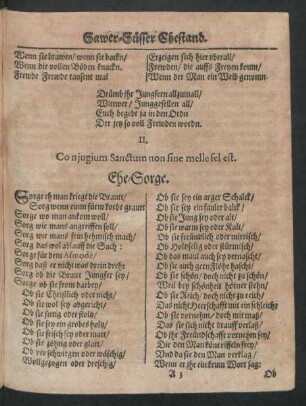 Sawer-Süsser Ehestand.
Wenn sie brawen/ wenn sie backn/
Wenn die vollen Böden knackn.
Frewde Frewde tausent mal
Erzeigen sich hier vberall/
Frewden/ die auffs Freyen komn/
Wenn der Man ein Weib genomn.
Drümb jhr Jungfern allzumall/
Witwer/ Junggesellen all/
Euch begebt ja in den Ordn
Der jetz so voll Frewden wordn.
II.
Conjugium Sanctum non sine melle fel est.
Ehe-Sorge.
Sorge eh man kriegt die Braut/
Sorg wenn einm fürm korbe grauet
Sorge wo man ankom woll/
Sorg wie mans angreiffen soll/
Sorg wie mans fein heimisch mach/
Sorg das wol ablauff die Sach:
Sorge für dem Asmodé/
Sorg daß er nicht was drein dreh:
Sorg ob die Braut Jungfer sey/
Sorge ob sie from darbey/
Ob sie Christlich oder nicht/
Ob sie wol sey abgericht/
Ob sie sittig oder stoltz/
Ob sie sey ein grobes holtz/
Ob sie keusch sey oder matt/
Ob sie zöhtig oder glatt/
Ob verschwiegen oder wäschig/
Vollgezogen oder dreschig/
Ob sie sey ein arger Schalck/
Ob sie sey ein fauler balck/
Ob sie Jung sey oder alt/
Ob sie warm sey oder Kalt/
Ob sie freündlich oder mürrisch/
Ob Holdselig oder stürmisch/
Ob das maul auch sey vernascht/
Ob sie auch gern Flöhe hascht/
Ob sie schön/ doch nicht zu schön/
Weil bey schönheit hörner stehn/
Ob sie Reich/ doch nicht zu reich/
Das nicht Herrschafft mit einschleich
Ob sie mutig oder from/
Das sie sich nicht drauff verlaß/
Ob ihr Freündschafte vornehm sey/
Die den Man könt eiffels frey/
Und da sie den Man verklag/
Wenn er ihr ein krum Wort sag:
A 3
Ob